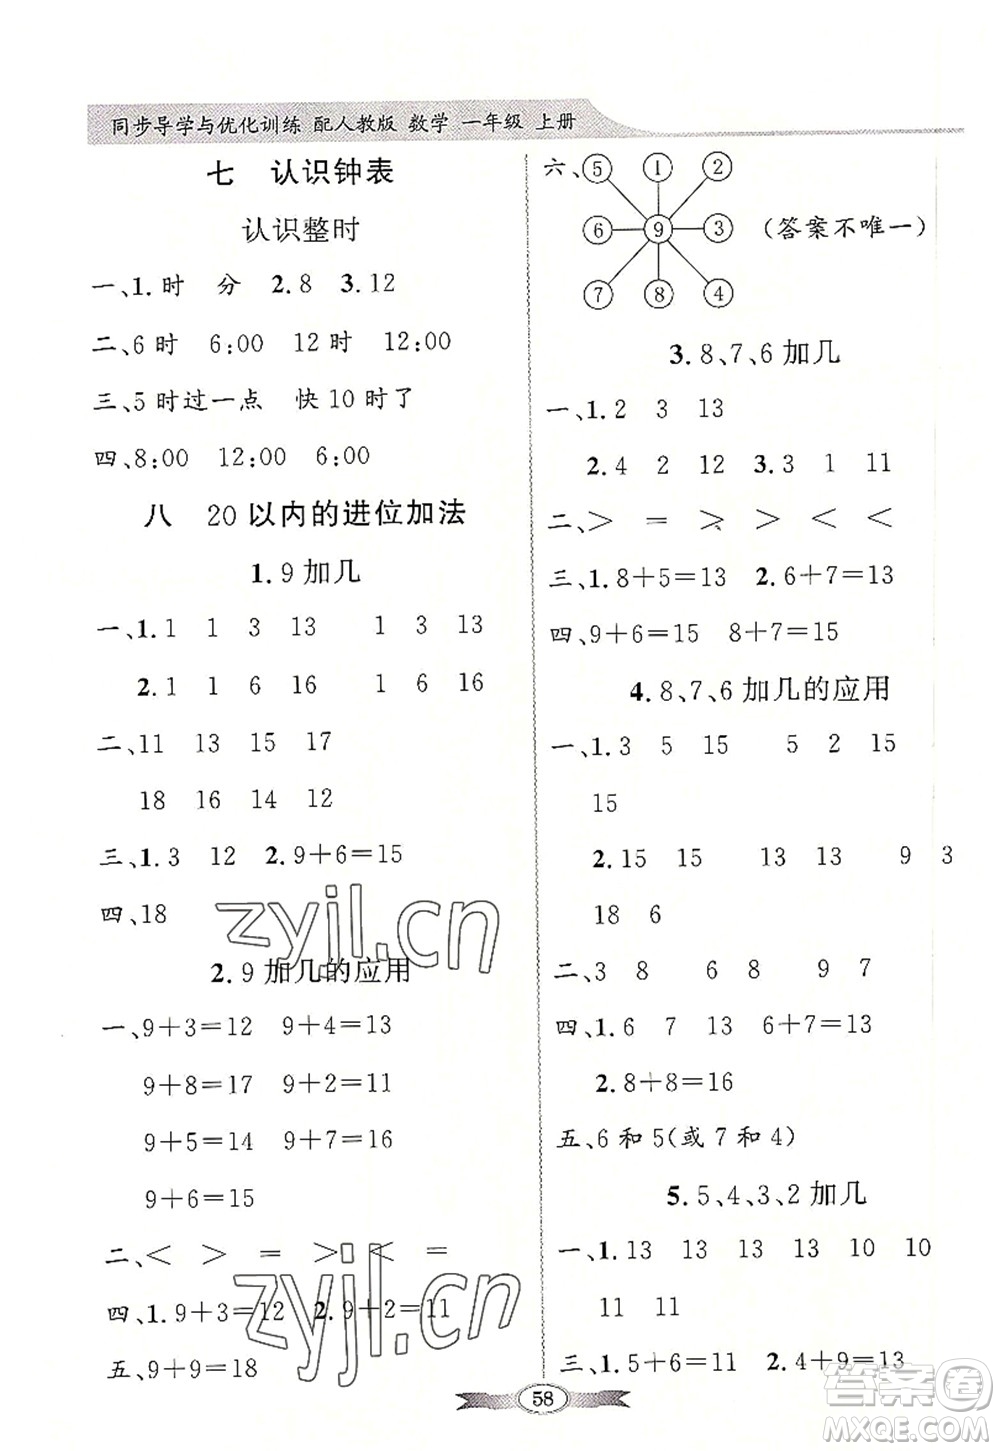 同步导学与优化训练 配人教版 数学 一年级 上册
七 认识钟表
认识整时
一、1.时 分 2.8 3.12
二、6时 6:00 12时 12:00
三、5时过一点 快10时了
四、8:00 12:00 6:00
八 20以内的进位加法
1.9加几
一、1.1 1 3 13 1 3 13
2.1 1 6 16 1 6 16
二、11 13 15 17
18 16 14 12
三、1.3 12 2.9+6=15
四、18
2.9加几的应用
一、9+3=12 9+4=13
9+8=17 9+2=11
9+5=14 9+7=16
9+6=15
二、< > = > < =
四、1.9+3=12 2.9+2=11
五、9+9=18
六、⑤ ① ②
⑥ ⑨ ③ (答案不唯一)
⑦ ⑧ ④
3.8、7、6加几
一、1.2 3 13
2.4 2 12 3.3 1 11
二、> = > > < <
三、1.8+5=13 2.6+7=13
四、9+6=15 8+7=15
4.8、7、6加几的应用
一、1.3 5 15 5 2 15
15
2.15 15 13 13 9 3
18 6
二、3 8 6 8 9 7
四、1.6 7 13 6+7=13
2.8+8=16
五、6和5(或7和4)
5.5、4、3、2加几
一、1.13 13 13 10 10
11 11
三、1.5+6=11 2.4+9=13
58
zyjl.cn
zyjl.cn
答案圈
MXQE.COM